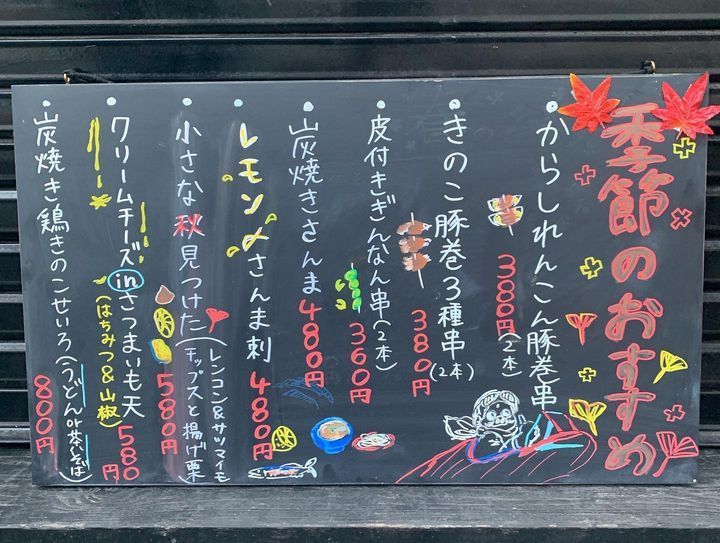 季節のおすすめ
・からしれんこん豚巻串
380円(2本)
・きのこ豚巻3種串(2本)
380円
・皮付きぎんなん串(2本)
360円
・炭焼きさんま 480円
・レモン〆さんま刺 480円
・小さな秋見つけた(レンコン&サツマイモチップスと揚げ栗)
580円
・クリームチーズinさつまいも天 580円
(はちみつ&山椒)
・炭焼き鶏きのこせいろ(うどんor茶そば)
800円